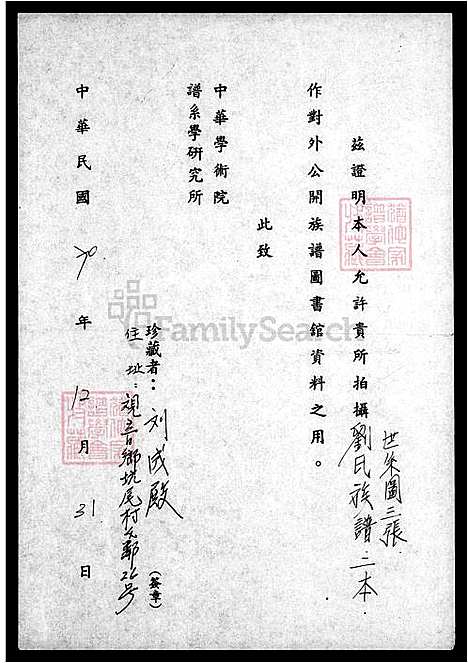 茲證明本人允許貴所拍攝劉氏族譜二本
世系圖三張
作對外公開族譜圖書館資料之用。
此致
中華學術院
譜系學研究所
珍藏者：刘成殿
住址：觀音鄉坑尾村2鄰26号
(簽章)
中華民國70年12月31日
FamilySearch